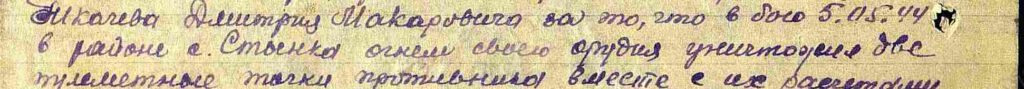 Ткачева Дмитрия Макаровича за то, что в бою 5.05.44
в районе с. Стынка огнем своего орудия уничтожил две
пулеметные точки противника вместе с их расчетами